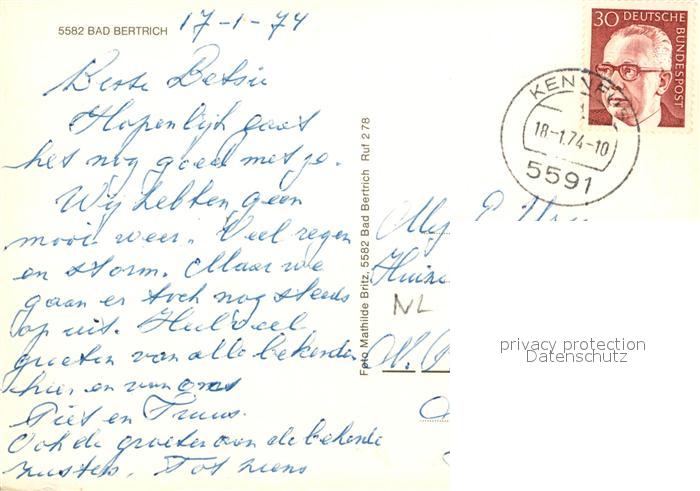 5582 BAD BERTRICH
17-1-74
Beste Betsie
Hopenlijk gaat
het nog goed met je.
Wij hebben geen
mooi weer. Veel regen
en storm. Maar we
gaan er toch nog steeds
op uit. Heel veel
groeten van alle bekenden
hier en van ons
Piet en Truus.
Ook de groeten aan de bekende
zusters. Tot ziens
Foto Mathilde Britz, 5582 Bad Bertrich Ruf 2 78
30 DEUTSCHE
BUNDESPOST
18-1.74-10
5591
NL
privacy protection
Datenschutz